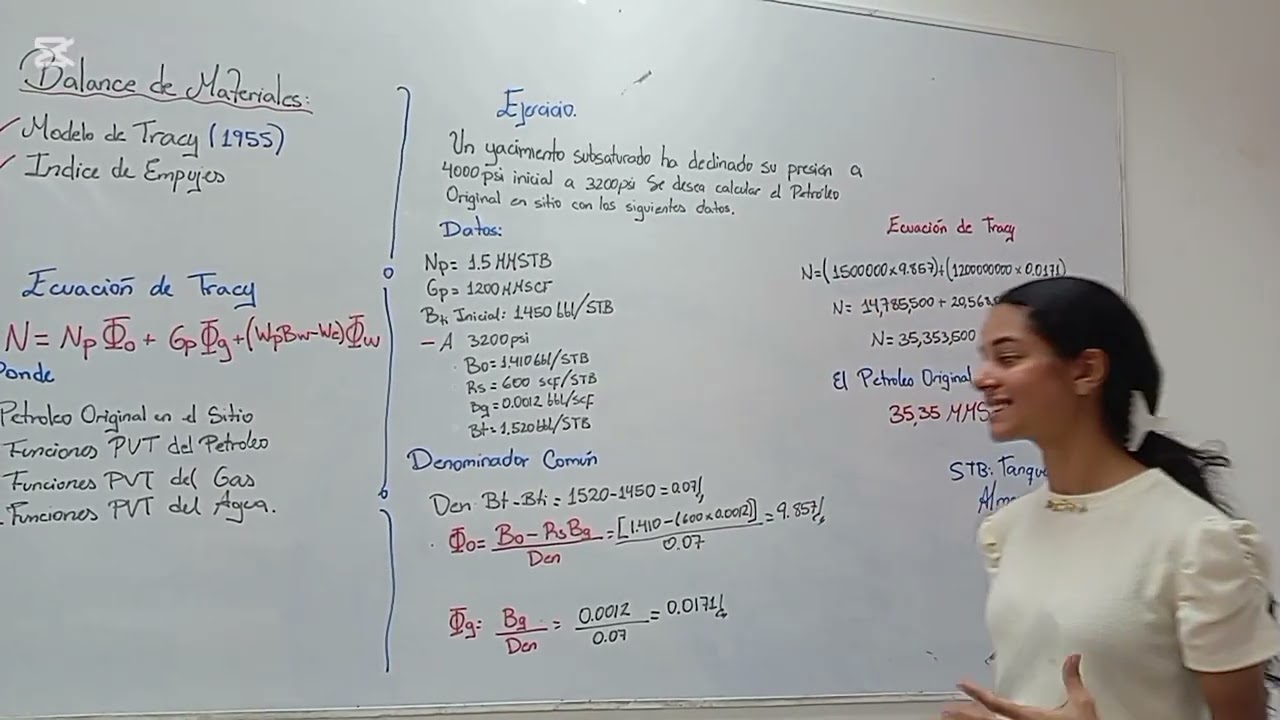 Balance de Materiales:
Modelo de Tracy (1955)
Indice de Empujes
Ecuación de Tracy
N = Np Φo + Gp Φg + (WpBw-We) Φw
Donde
Petroleo Original en el Sitio
Funciones PVT del Petroleo
Funciones PVT del Gas
Funciones PVT del Agua.
Ejercicio.
Un yacimiento subsaturado ha declinado su presión a
4000psi inicial a 3200psi Se desea calcular el Petróleo
Original en sitio con los siguientes datos.
Datos:
Np= 1.5 MMSTB
Gp= 1200 MMSCF
Bti Inicial: 1.450 bbl/STB
- A 3200psi
Bo= 1.410 bbl/STB
Rs = 600 scf/STB
Bg= 0.0012 bbl/scf
Bt= 1.520 bbl/STB
Denominador Común
Den Bt - Bti = 1520-1450 = 0.07
Φo= Bo - RsBg / Den = [1.410 - (600x0.0012)] / 0.07 = 9.857
Φg= Bg / Den = 0.0012 / 0.07 = 0.0171
Ecuación de Tracy
N=(1500000x9.857)+(1200000000x0.0171)
N= 14,785,500 + 20,568
N= 35,353,500
El Petroleo Original
35,35 MMS
STB: Tanque